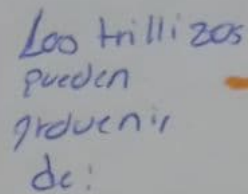 Los trillizos
pueden
provenir
de: